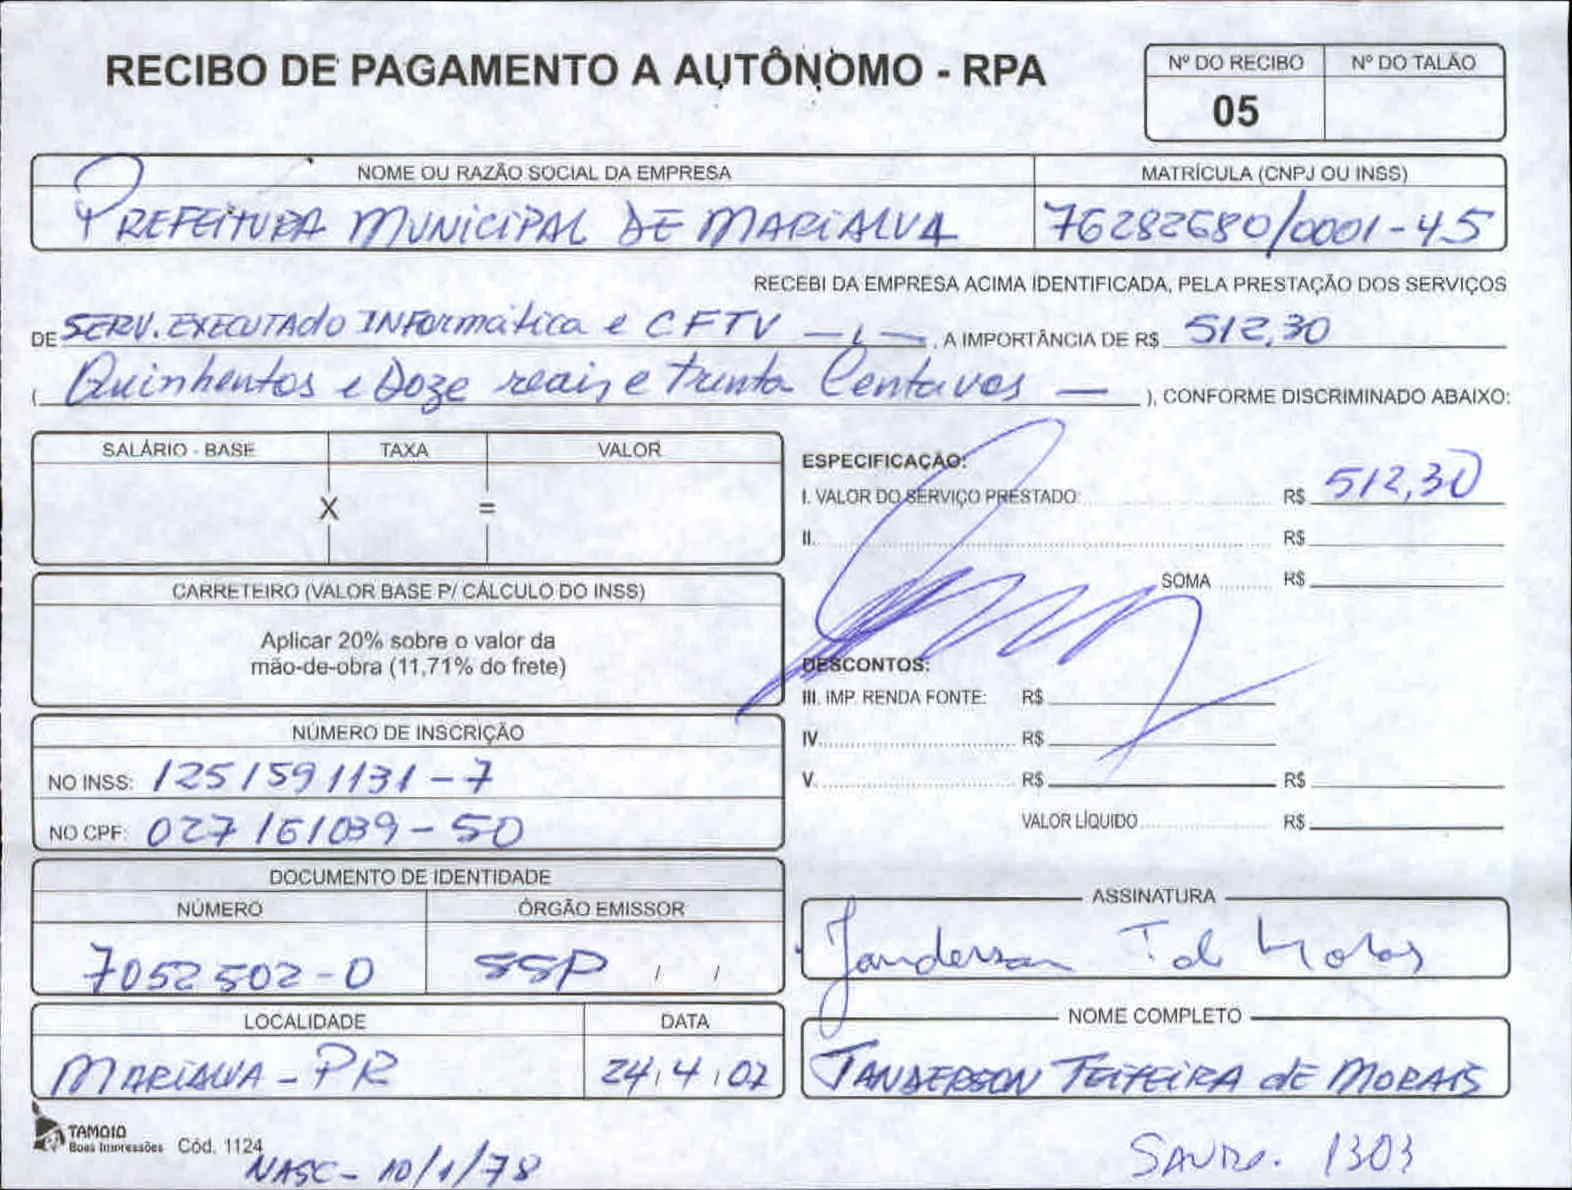 RECIBO DE PAGAMENTO A AUTÔNOMO - RPA
Nº DO RECIBO Nº DO TALÃO
05
NOME OU RAZÃO SOCIAL DA EMPRESA MATRÍCULA (CNPJ OU INSS)
PREFEITURA MUNICIPAL DE MARIALVA 76282680/0001-45
RECEBI DA EMPRESA ACIMA IDENTIFICADA, PELA PRESTAÇÃO DOS SERVIÇOS
DE SERV. EXECUTADO INFORMÁTICA e CFTV , A IMPORTÂNCIA DE R$ 512,30
( Quinhentos e Doze reais e trinta Centavos — ), CONFORME DISCRIMINADO ABAIXO:
SALÁRIO - BASE TAXA VALOR
X =
CARRETEIRO (VALOR BASE P/ CÁLCULO DO INSS)
Aplicar 20% sobre o valor da
mão-de-obra (11,71% do frete)
NÚMERO DE INSCRIÇÃO
NO INSS: 1251591131-7
NO CPF: 027161039-50
DOCUMENTO DE IDENTIDADE
NÚMERO ÓRGÃO EMISSOR
7052502-0 SSP / /
LOCALIDADE DATA
MARIALVA - PR 24/4/07
ESPECIFICAÇÃO:
I. VALOR DO SERVIÇO PRESTADO: R$ 512,30
II. R$
SOMA R$
DESCONTOS:
III. IMP. RENDA FONTE: R$
IV. R$
V. R$ R$
VALOR LÍQUIDO R$
ASSINATURA
Janderson T de Morais
NOME COMPLETO
JANDERSON TEIXEIRA DE MORAIS
TAMOIO
Boas Impressões Cód. 1124
NASC - 10/1/78
1303